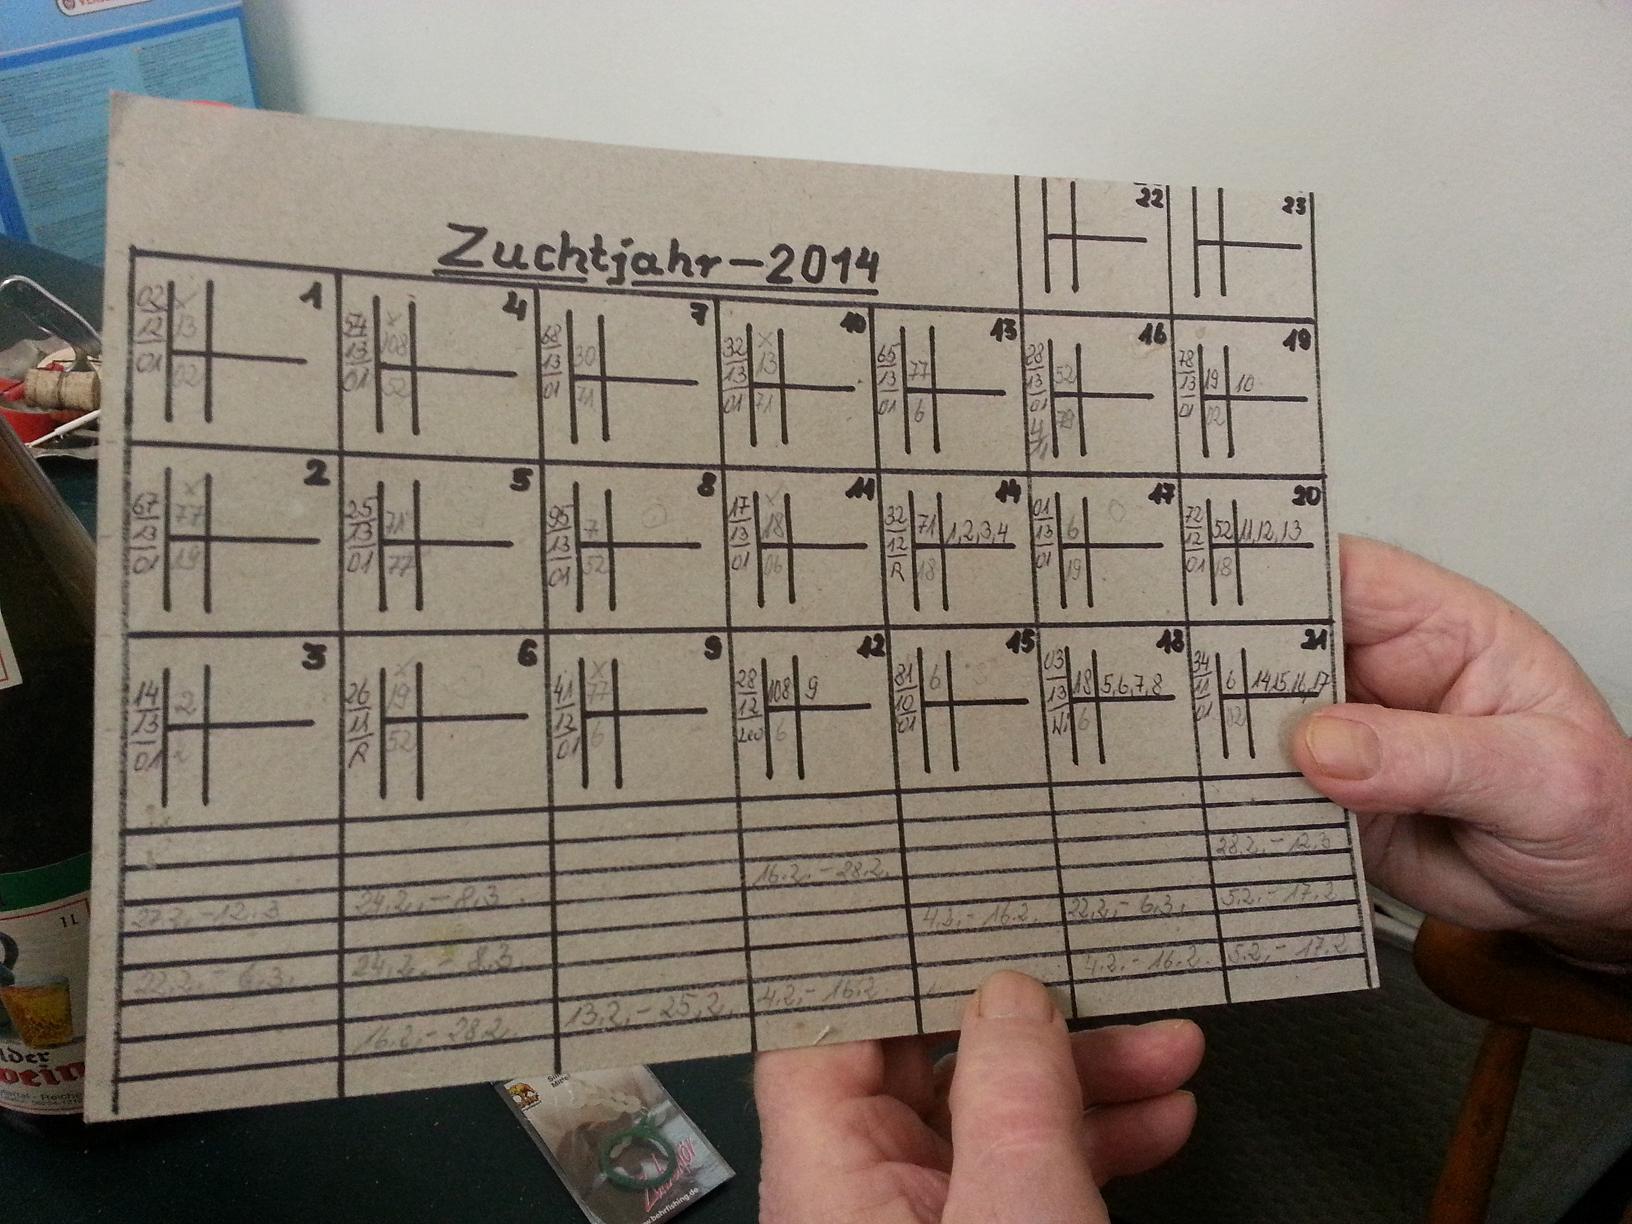 22
23
Zuchtjahr-2014
1
02
12
01
x
13
02
4
54
13
01
x
108
52
7
68
13
01
30
71
10
32
13
01
x
13
71
13
65
13
01
77
6
16
28
13
01
52
79
19
78
13
01
19
10
02
2
67
13
01
x
77
19
5
25
13
01
71
77
8
95
13
01
7
52
11
17
13
01
x
18
06
14
32
12
R
71
1,2,3,4
18
17
01
13
01
6
19
20
72
12
01
52
11,12,13
18
3
14
13
01
2
6
26
11
R
x
19
52
9
41
12
01
x
77
6
12
28
12
Leo
108
9
6
15
81
10
01
6
18
03
13
Ni
18
5,6,7,8
6
21
34
11
01
6
14,15,16,17
28.2.-12.3
16.2.-28.2.
27.2.-12.3
24.2.-8.3.
4.2.-16.2.
22.2.-6.3.
5.2.-17.2.
22.2.-6.3.
24.2.-8.3.
4.2.-16.2.
5.2.-17.2
16.2.-28.2.
13.2.-25.2.
4.2.-16.2.
1L
www.behrfishing.de